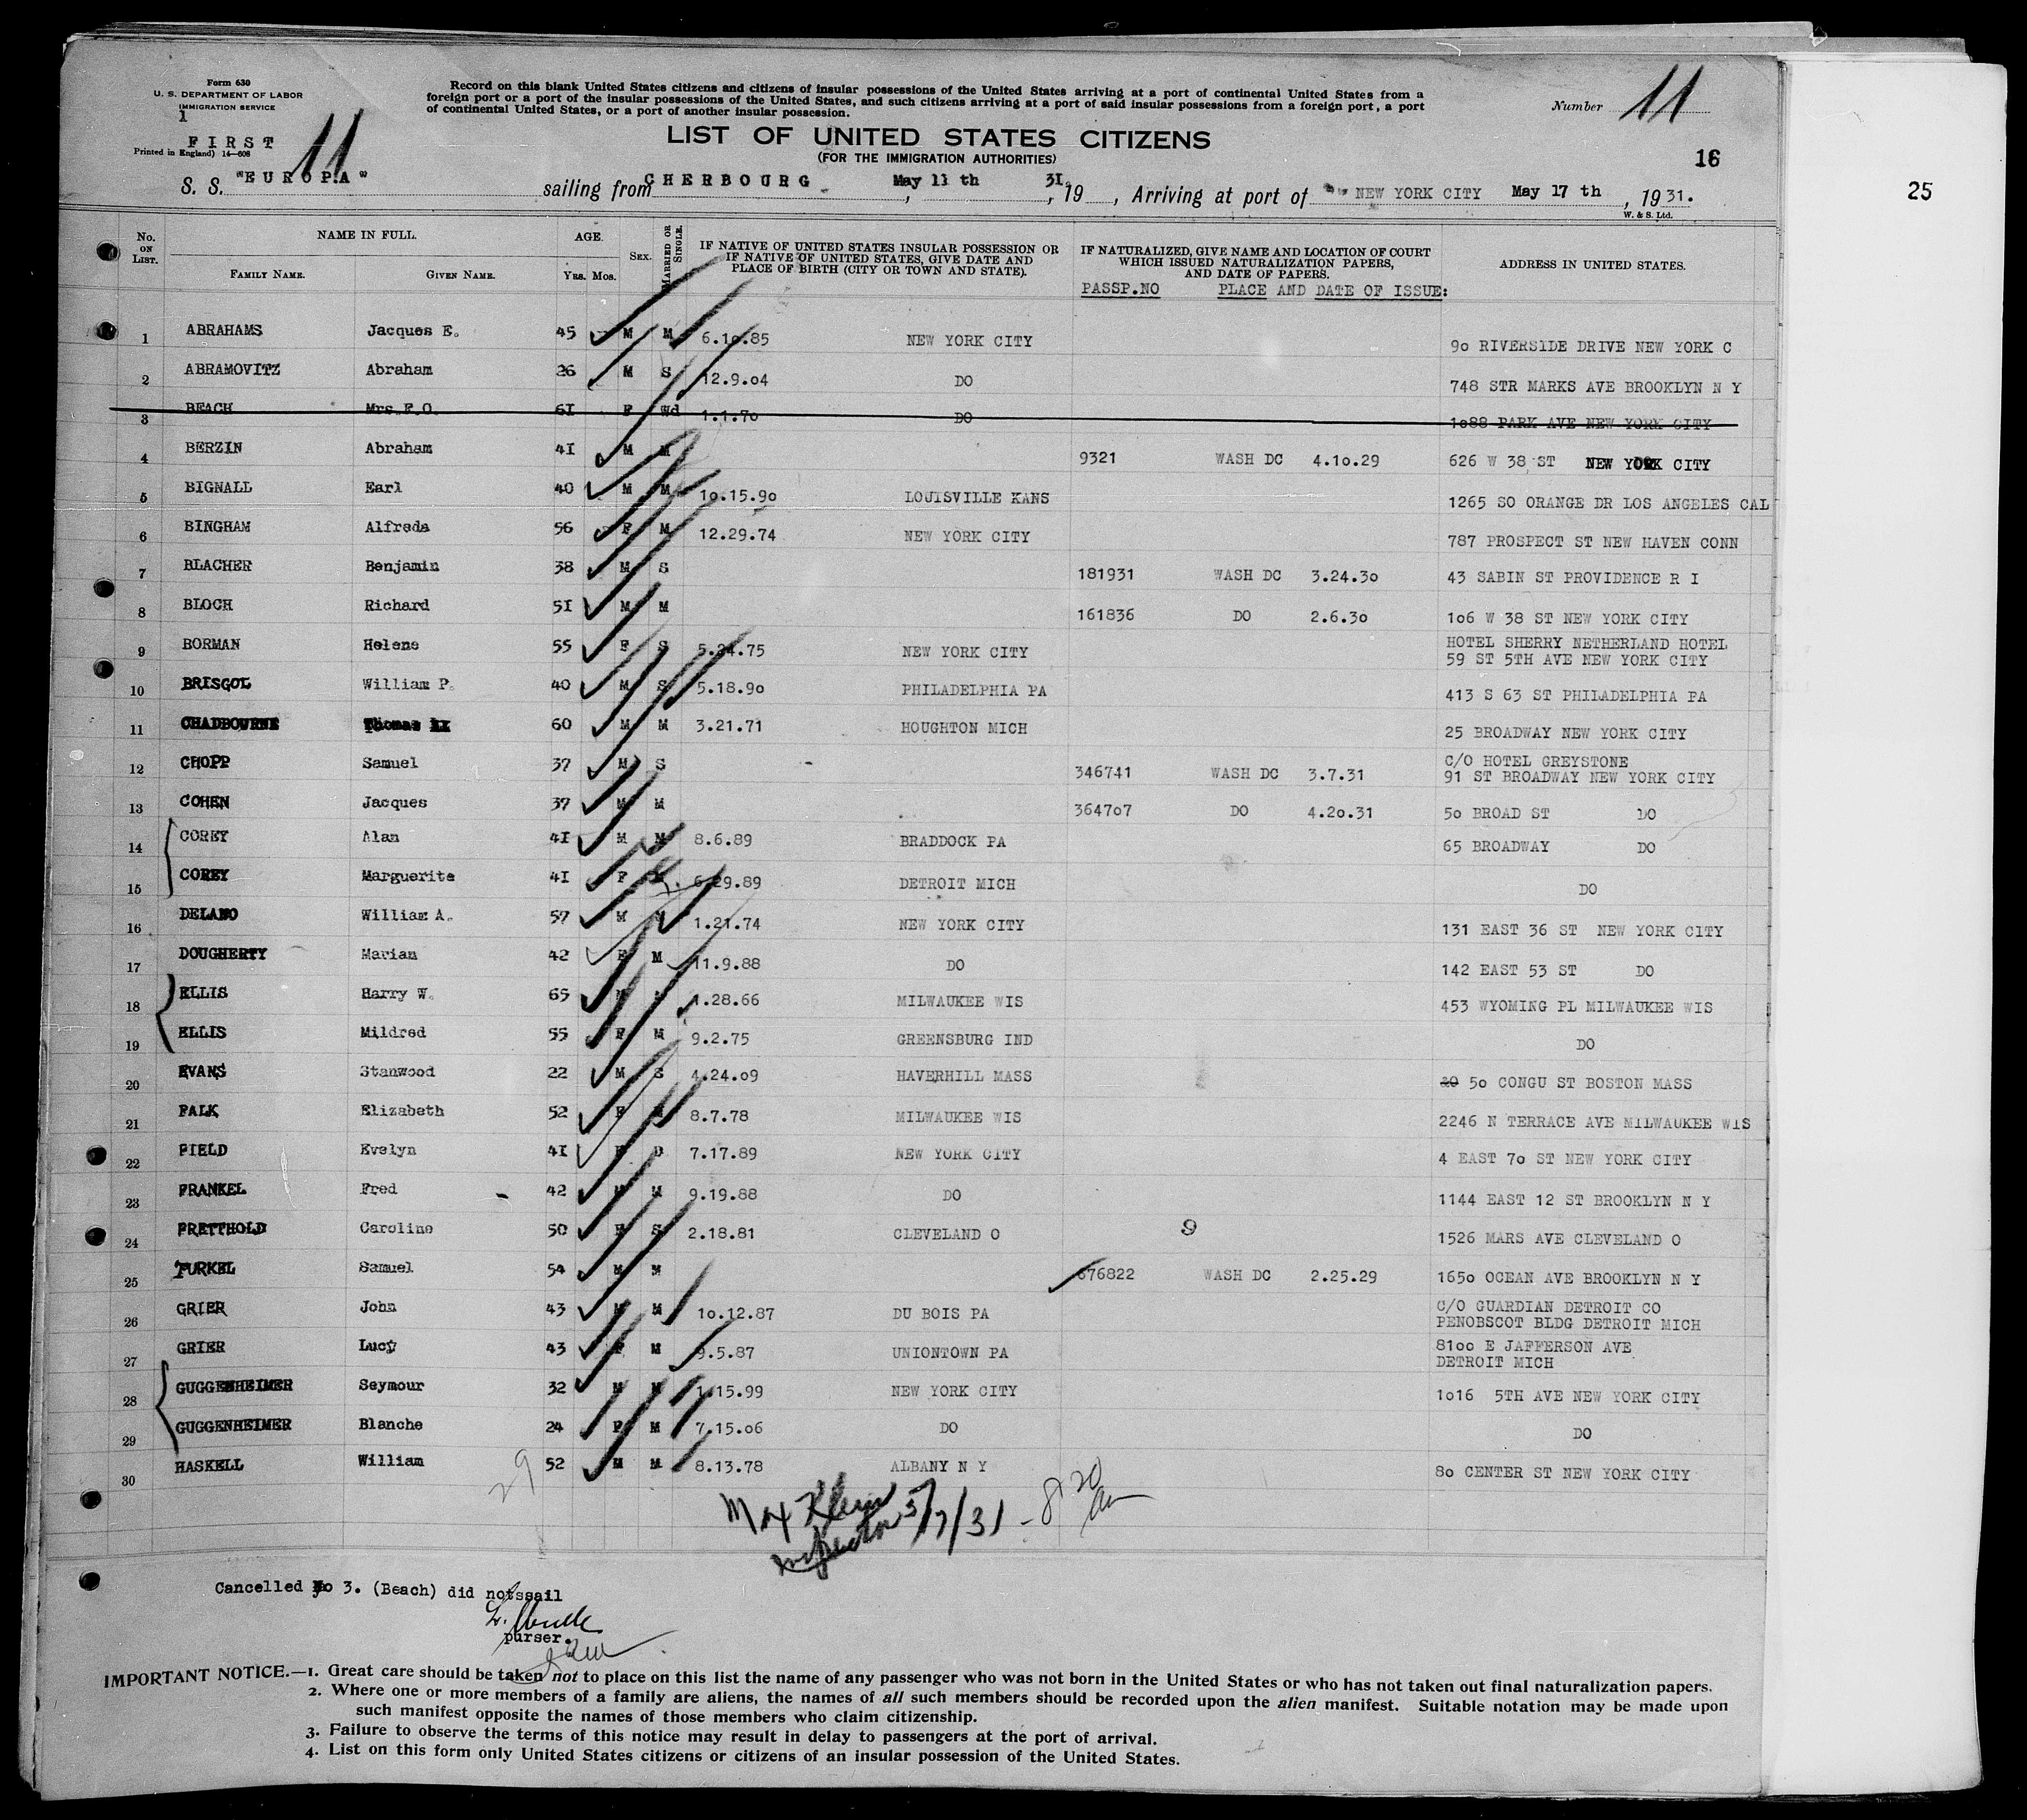 Form 630
U. S. DEPARTMENT OF LABOR
IMMIGRATION SERVICE
1
FIRST
Printed in England) 14—608
11
Record on this blank United States citizens and citizens of insular possessions of the United States arriving at a port of continental United States from a
foreign port or a port of the insular possessions of the United States, and such citizens arriving at a port of said insular possessions from a foreign port, a port
of continental United States, or a port of another insular possession.
Number 11
LIST OF UNITED STATES CITIZENS
(FOR THE IMMIGRATION AUTHORITIES)
16
25
S. S. "EUROPA" sailing from CHERBOURG, May 11 th 31, 19 , Arriving at port of NEW YORK CITY May 17 th, 1931.
W. & S. Ltd.
No. ON LIST. NAME IN FULL. AGE. SEX. MARRIED OR SINGLE. IF NATIVE OF UNITED STATES INSULAR POSSESSION OR IF NATIVE OF UNITED STATES, GIVE DATE AND PLACE OF BIRTH (CITY OR TOWN AND STATE). IF NATURALIZED, GIVE NAME AND LOCATION OF COURT WHICH ISSUED NATURALIZATION PAPERS, AND DATE OF PAPERS. ADDRESS IN UNITED STATES.
FAMILY NAME. GIVEN NAME. YRS. MOS.
PASSP.NO PLACE AND DATE OF ISSUE:
1 ABRAHAMS Jacques E. 45 M M 6.10.85 NEW YORK CITY 90 RIVERSIDE DRIVE NEW YORK C
2 ABRAMOVITZ Abraham 26 M S 12.9.04 DO 748 STR MARKS AVE BROOKLYN N Y
3 BEACH Mrs.F.O. 61 F Wd 1.1.70 DO 1088 PARK AVE NEW YORK CITY
4 BERZIN Abraham 41 M M 9321 WASH DC 4.10.29 626 W 38 ST NEW YORK CITY
5 BIGNALL Earl 40 M M 10.15.90 LOUISVILLE KANS 1265 SO ORANGE DR LOS ANGELES CAL
6 BINGHAM Alfreda 56 F M 12.29.74 NEW YORK CITY 787 PROSPECT ST NEW HAVEN CONN
7 BLACHER Benjamin 38 M S 181931 WASH DC 3.24.30 43 SABIN ST PROVIDENCE R I
8 BLOCH Richard 51 M M 161836 DO 2.6.30 106 W 38 ST NEW YORK CITY
9 BORMAN Helene 55 F S 5.24.75 NEW YORK CITY HOTEL SHERRY NETHERLAND HOTEL
59 ST 5TH AVE NEW YORK CITY
10 BRISGOL William P. 40 M S 5.18.90 PHILADELPHIA PA 413 S 63 ST PHILADELPHIA PA
11 CHADBOURNE Thomas 60 M M 3.21.71 HOUGHTON MICH 25 BROADWAY NEW YORK CITY
12 CHOPP Samuel 37 M S 346741 WASH DC 3.7.31 C/O HOTEL GREYSTONE
91 ST BROADWAY NEW YORK CITY
13 COHEN Jacques 37 M M 364707 DO 4.20.31 50 BROAD ST DO
14 COREY Alan 41 M M 8.6.89 BRADDOCK PA 65 BROADWAY DO
15 COREY Marguerite 41 F 6.29.89 DETROIT MICH DO
16 DELANO William A. 57 M M 1.21.74 NEW YORK CITY 131 EAST 36 ST NEW YORK CITY
17 DOUGHERTY Marian 42 F M 11.9.88 DO 142 EAST 53 ST DO
18 ELLIS Harry W. 65 M 1.28.66 MILWAUKEE WIS 453 WYOMING PL MILWAUKEE WIS
19 ELLIS Mildred 55 F M 9.2.75 GREENSBURG IND DO
20 EVANS Stanwood 22 M S 4.24.09 HAVERHILL MASS 50 CONGU ST BOSTON MASS
21 FALK Elizabeth 52 F M 8.7.78 MILWAUKEE WIS 2246 N TERRACE AVE MILWAUKEE WIS
22 FIELD Evelyn 41 F D 7.17.89 NEW YORK CITY 4 EAST 70 ST NEW YORK CITY
23 FRANKEL Fred 42 M M 9.19.88 DO 1144 EAST 12 ST BROOKLYN N Y
24 PRETTHOLD Caroline 50 F S 2.18.81 CLEVELAND O 9 1526 MARS AVE CLEVELAND O
25 TURKEL Samuel 54 M M 676822 WASH DC 2.25.29 1650 OCEAN AVE BROOKLYN N Y
26 GRIER John 43 M M 10.12.87 DU BOIS PA C/O GUARDIAN DETROIT CO
PENOBSCOT BLDG DETROIT MICH
27 GRIER Lucy 43 F M 9.5.87 UNIONTOWN PA 8100 E JAFFERSON AVE
DETROIT MICH
28 GUGGENHEIMER Seymour 32 M M 1.15.99 NEW YORK CITY 1016 5TH AVE NEW YORK CITY
29 GUGGENHEIMER Blanche 24 F M 7.15.06 DO DO
30 HASKELL William 52 M M 8.13.78 ALBANY N Y 80 CENTER ST NEW YORK CITY
29
Max Klein 5/7/31 - 8 20 am
Inspector
Cancelled No 3. (Beach) did notssail
purser.
IMPORTANT NOTICE.—1. Great care should be taken not to place on this list the name of any passenger who was not born in the United States or who has not taken out final naturalization papers.
2. Where one or more members of a family are aliens, the names of all such members should be recorded upon the alien manifest. Suitable notation may be made upon
such manifest opposite the names of those members who claim citizenship.
3. Failure to observe the terms of this notice may result in delay to passengers at the port of arrival.
4. List on this form only United States citizens or citizens of an insular possession of the United States.